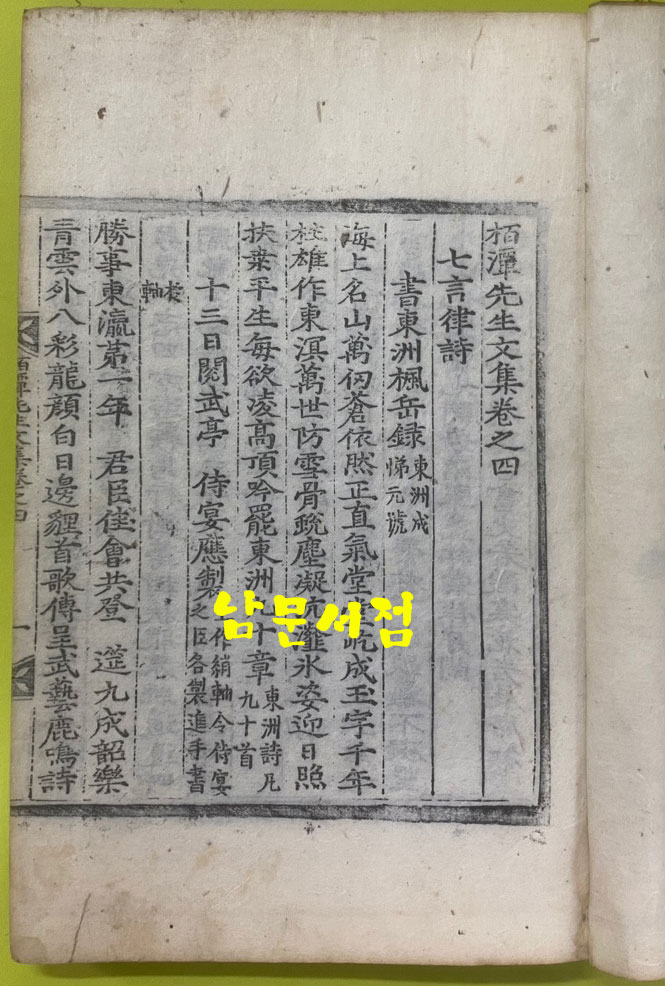 栢潭先生文集卷之四
七言律詩
書東洲楓岳録 東洲成
悌元號
海上名山萬仞蒼依然正直氣堂堂屹成玉宇千年
柱雄作東溟萬世防雪骨䟽塵凝沆瀣氷姿迎日照
扶桒平生每欲凌高頂吟罷東洲九十章 東洲詩凡
九十首
十三日閱武亭 侍宴應製 作絹軸令侍宴
之臣各製進手書
扵軸
勝事東瀛第一年 君臣佳會共登 筵九成韶樂
青雲外八彩龍顏白日邊貍首歌傳呈武藝鹿鳴詩
栢潭先生文集卷之四 一
남문서점